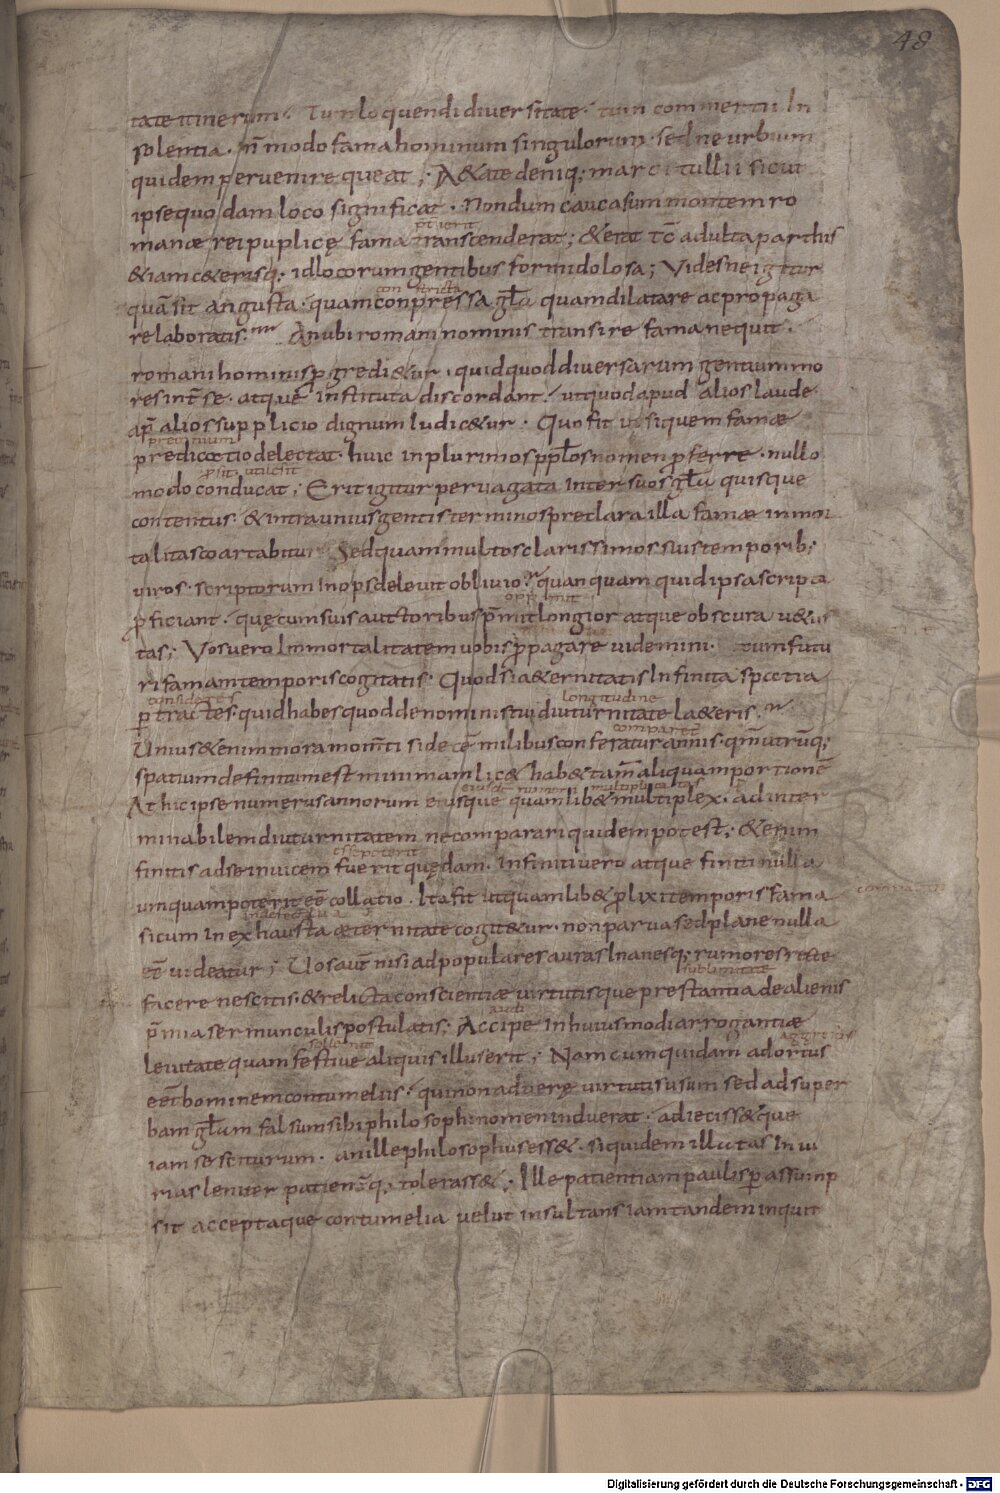 48
tate itinerum. Tum loquendi diversitate. tum commertii In
solentia. n̄ modo fama hominum singulorum. sed ne urbium
quidem pervenire queat; A&ate deniq; marci tullii sicut
ipse quodam loco significat. Nondum caucasum montem ro
manae rei puplicę fama transcenderat; & erat tc̄ adulta parthis
&iam c&erisq. id locorum gentibus formidolosa; Videsne igitur
con stricta
quā sit angusta. quam conpressa gła quam dilatare ac propaga
re laboratis. An ubi romani nominis transire fama nequit.
romani hominis ꝓgredi&ur. quid quod diversarum gentium mo
res int̄ se. atq.ue instituta discordant. ut quod apud alios laude
ap̄ alios supplicio dignum Iudic&ur. Quo fit ut siquem famae
preconium
predicatio delectat. huic in plurimos ppłos nomen ꝓferre. nullo
ꝓsit utile sit
modo conducat; Erit igitur pervagata inter suos gła quisque
contentus. & intra unius gentis terminos preclara illa famae inmor
talitas coartabitur. Sed quam multos clarissimos suis temporib;
viros. scriptorum inops delevit oblivio. quanquam quid ipsa scripta
opp mit
ꝓficiant. quę cum suis auctoribus p̄mit longior atque obscura v&us
tas; Vos vero Immortalitatem vobis ꝓpagare videmini. cum futu
ri famam temporis cogitatis. Quod si a&ernitatis Infinita spacia
consideres longitudine
ꝑtractes. quid habes quod de nominis tui diuturnitate la&eris.
comparet
Unius &enim mora mom̄ti si decē milibus conferatur annis. qm̄ utrūq;
spatium definitum est minimam lic& hab& tam̄ aliquam portionē
At hic ipse numerus annorum eiusque quamlib& multiplex. ad inter
minabilem diuturnitatem ne comparari quidem potest; &enim
esse poterit
finitis ad se invicem fuerit quędam. infiniti vero atque finiti nulla
umquam poterit eē collatio. Ita fit ut quamlib& ꝓlixi temporis fama
si cum inexhausta aeternitate cogit&ur. non parva sed plane nulla
eē videatur; Uos aut̄ nisi ad populares auras Inanesq; rumores recte
sublimitate
facere nescitis. & relicta conscientiae virtutisque prestantia de alienis
audi
p̄mia sermunculis postulatis; Accipe In huiusmodi arrogantiae
levitate quam festive aliquis illuserit; Nam cum quidam adortus
eēt hominem contumeliis. qui non ad verę virtutis usum sed ad super
bam głam falsum sibi philosophi nomen induerat. adieciss&que
iam se sciturum. an ille philosophus ess&. si quidem illatas In iu
rias leniter patient̄q; tolerass&; Ille patientiam paulisꝑ assump
sit acceptaque contumelia velut insultans iam tandem inquit
Digitalisierung gefördert durch die Deutsche Forschungsgemeinschaft - DFG